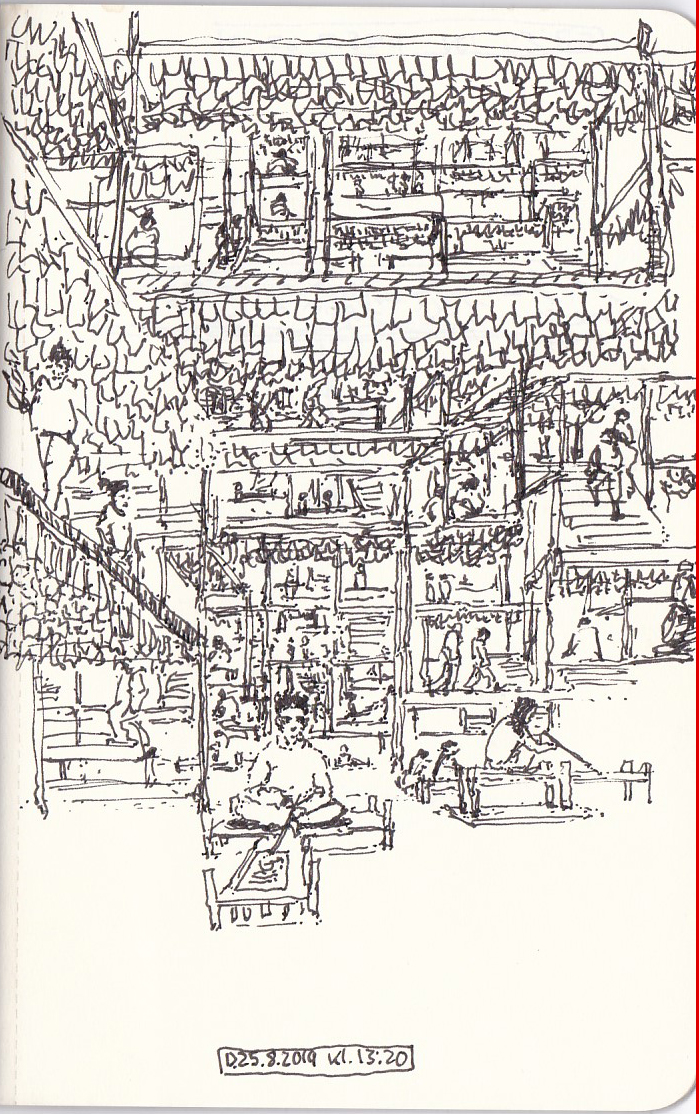 D.25.8.2019 kl. 13:20